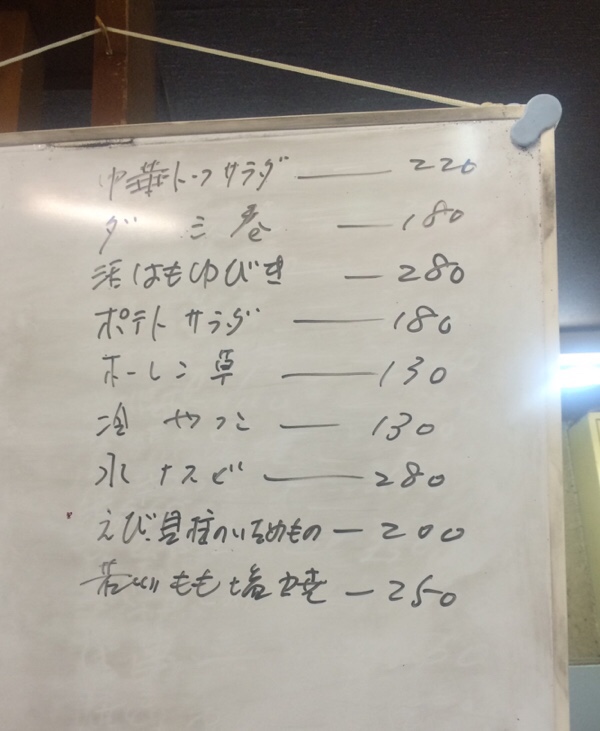 中華トーフサラダ — 220
ダシ巻 — 180
活はもゆびき — 280
ポテトサラダ — 180
ホーレン草 — 130
冷やっこ — 130
水ナス — 280
えび、貝柱のいためもの — 200
若どりもも塩焼 — 250